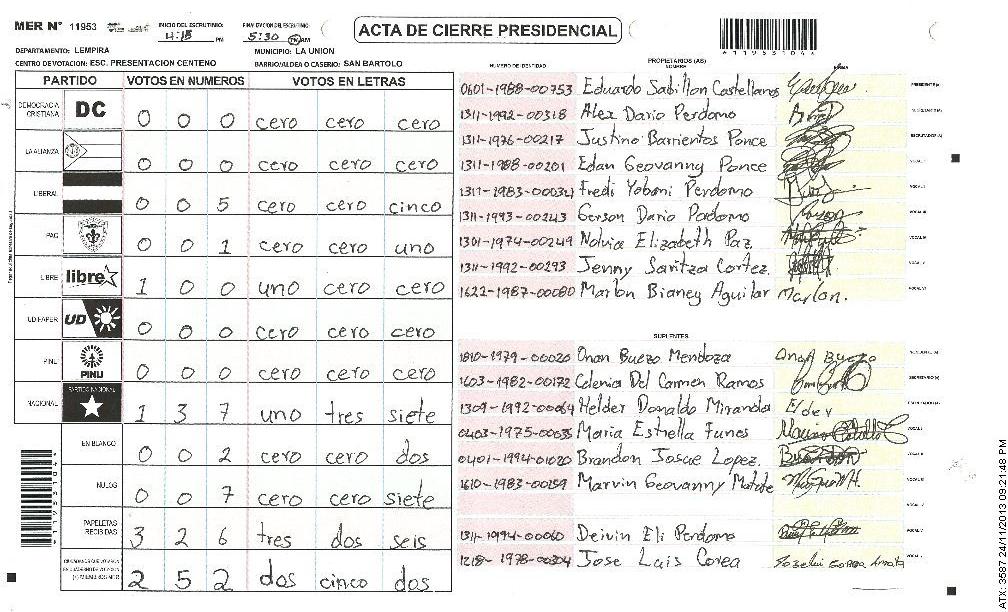 MER N° 11953
INICIO DEL ESCRUTINIO:
4:15 PM
FINALIZACION DEL ESCRUTINIO:
5:30 AM
ACTA DE CIERRE PRESIDENCIAL
DEPARTAMENTO: LEMPIRA
MUNICIPIO: LA UNION
CENTRO DE VOTACION: ESC. PRESENTACION CENTENO
BARRIO/ALDEA O CASERIO: SAN BARTOLO
PARTIDO VOTOS EN NUMEROS VOTOS EN LETRAS
DEMOCRACIA CRISTIANA DC 0 0 0 cero cero cero
LA ALIANZA 0 0 0 cero cero cero
LIBERAL 0 0 5 cero cero cinco
PAC 0 0 1 cero cero uno
LIBRE libre 1 0 0 uno cero cero
UD/FAPER UD 0 0 0 cero cero cero
PINU PINU 0 0 0 cero cero cero
NACIONAL PARTIDO NACIONAL 1 3 7 uno tres siete
EN BLANCO 0 0 2 cero cero dos
NULOS 0 0 7 cero cero siete
PAPELETAS RECIBIDAS 3 2 6 tres dos seis
2 5 2 dos cinco dos
NUMERO DE IDENTIDAD PROPIETARIOS (AS) NOMBRE FIRMA
0601-1988-00753 Eduardo Sabillon Castellanos PRESIDENTE (A)
1311-1992-00318 Alex Dario Perdomo SECRETARIO (A)
1311-1976-00217 Justino Barrientos Ponce ESCRUTADOR (A)
1311-1988-00201 Edan Geovanny Ponce VOCAL I
Fredi Yobani Perdomo VOCAL II
1311-1993-00243 Gerson Dario Perdomo VOCAL III
1301-1974-00249 Nolvia Elizabeth Paz VOCAL IV
1311-1992-00293 Jenny Saritza Cortez VOCAL V
1622-1987-00080 Marlon Bianey Aguilar Marlon. VOCAL VI
SUPLENTES
1810-1979-00020 Onan Buezo Mendoza Onan Buezo PRESIDENTE (A)
1603-1982-00172 Celenia Del Carmen Ramos SECRETARIO (A)
1309-1992-00064 Helder Donaldo Miranda Elder ESCRUTADOR (A)
0403-1975-00035 Maria Estrella Funes VOCAL I
0401-1994-01020 Brandon Josue Lopez. VOCAL II
1610-1983-00259 Marvin Geovanny Matute VOCAL III
1311-1994-00060 Deivin Eli Perdomo VOCAL V
1218-1978-00304 Jose Luis Corea
ATX: 3587 24/11/2013 09:21:48 PM